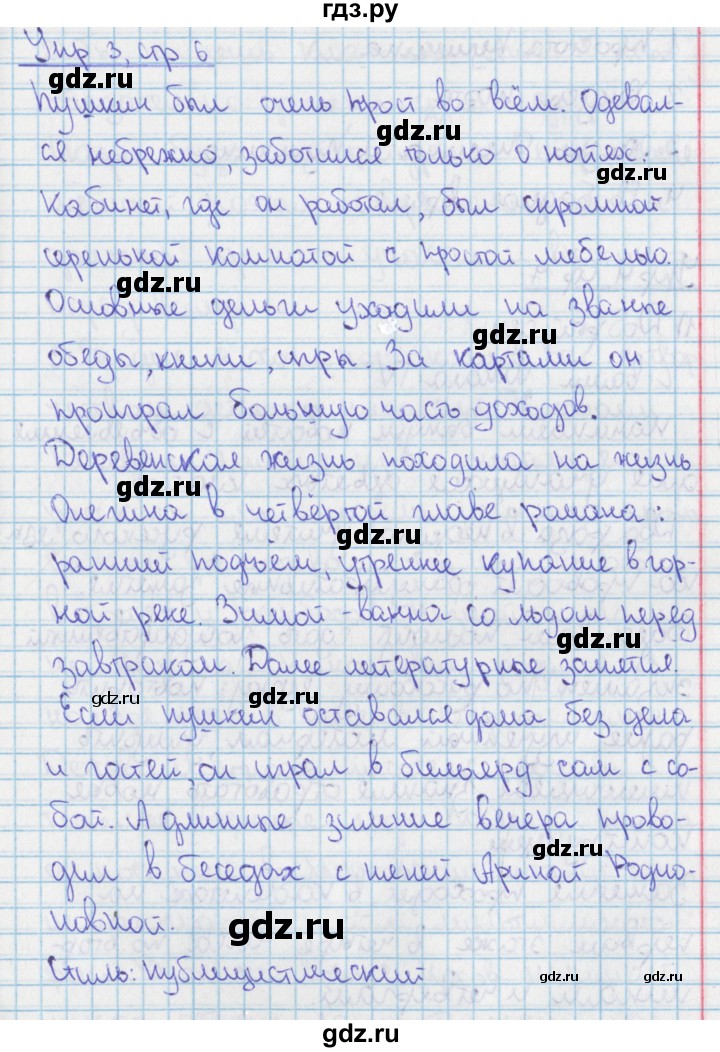 гдз.ру
Упр 3, стр 6
Пушкин был очень прост во всём. Одевал-
gdz.ru
ся небрежно, заботился только о ногтях.
gdz.ru
Кабинет, где он работал, был скромной
серенькой комнатой с простой мебелью.
gdz.ru
Основные деньги уходили на званые
gdz.ru
обеды, книги, игры. За картами он
проиграл большую часть доходов.
Деревенская жизнь походила на жизнь
gdz.ru
Онегина в четвёртой главе романа:
gdz.ru
ранний подъём, утренние купание в гор-
ной реке. Зимой - ванна со льдом перед
gdz.ru
завтраком. Далее литературные занятия.
gdz.ru
gdz.ru
Если Пушкин оставался дома без дела
и гостей, он играл в бильярд сам с со-
бой. А длинные зимние вечера прово-
gdz.ru
дил в беседах с няней Ариной Родио-
новной.
gdz.ru
Стиль: публицистический
gdz.ru
gdz.ru
gdz.ru